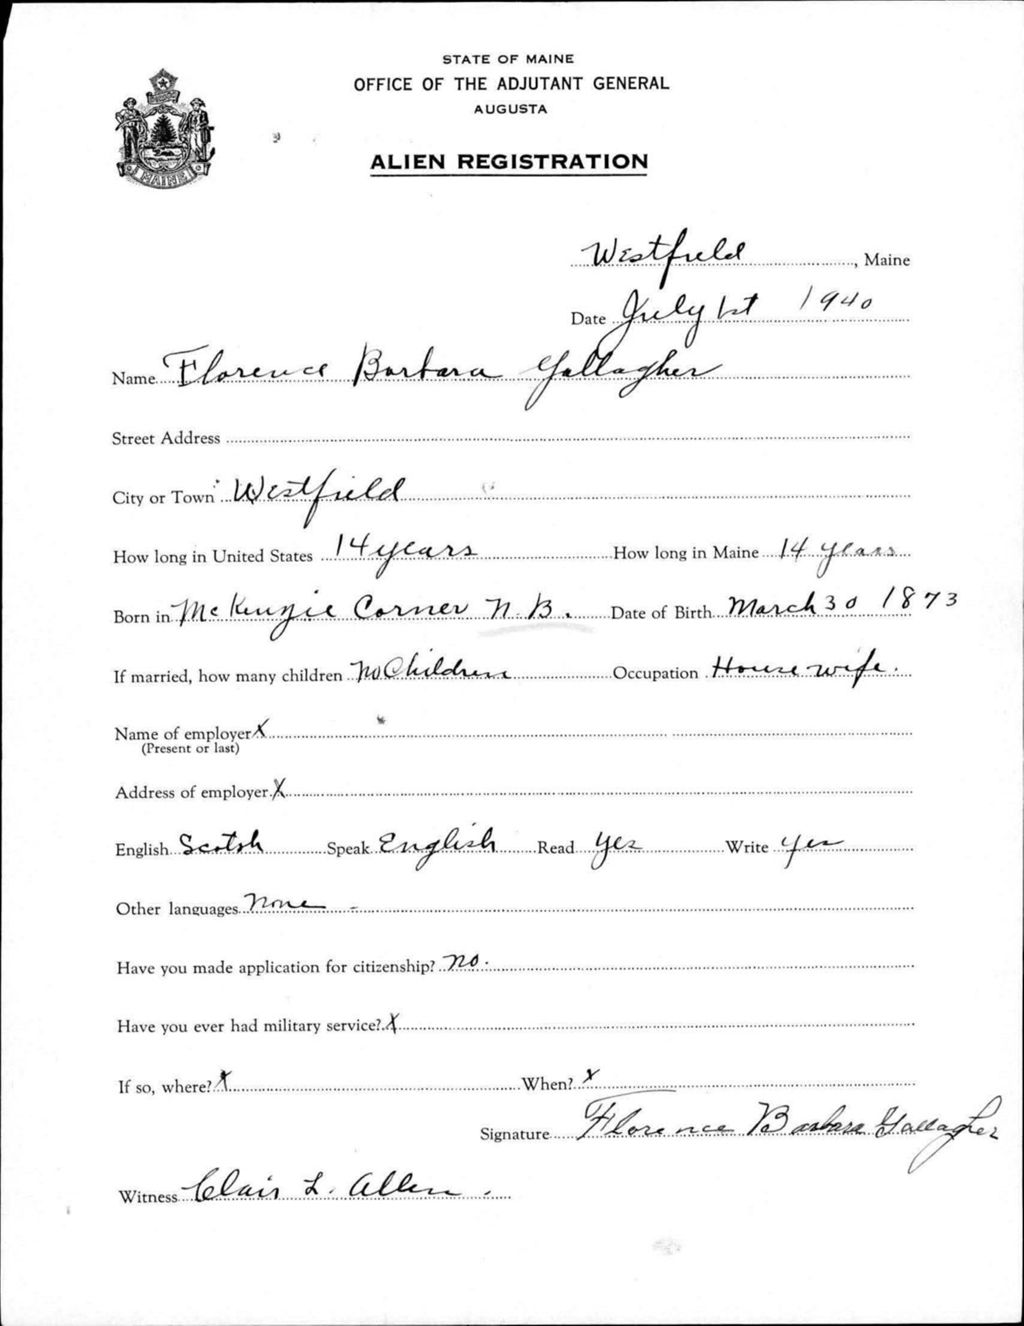 STATE OF MAINE
OFFICE OF THE ADJUTANT GENERAL
AUGUSTA
MAINE
ALIEN REGISTRATION
Westfield, Maine
Date July 1st 1940
Name Florence Barbara Gallagher
Street Address
City or Town Westfield
How long in United States 14 years How long in Maine 14 years
Born in McKenzie Corner N.B. Date of Birth March 30 1873
If married, how many children No Children Occupation House wife.
Name of employer X
(Present or last)
Address of employer X
English Scotch Speak English Read yes Write yes
Other languages None -
Have you made application for citizenship? No.
Have you ever had military service? X
If so, where? X When? X
Signature Florence Barbara Gallagher
Witness Clair L. Allen.